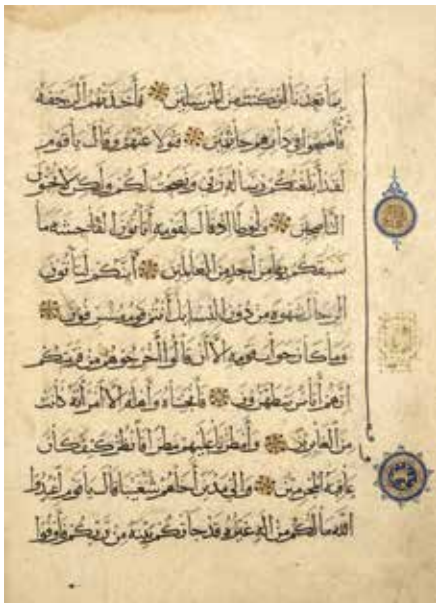 بما تعدنا ان كنت من المرسلين فأخذتهم الرجفة
فأصبحوا في دارهم جاثمين فتولى عنهم وقال يا قوم
لقد أبلغتكم رسالة ربي ونصحت لكم ولكن لا تحبون
الناصحين ولوطا إذ قال لقومه أتأتون الفاحشة ما
سبقكم بها من أحد من العالمين أئنكم لتأتون
الرجال شهوة من دون النساء بل أنتم قوم مسرفون
وما كان جواب قومه إلا أن قالوا أخرجوهم من قريتكم
إنهم أناس يتطهرون فأنجيناه وأهله إلا امرأته كانت
من الغابرين وأمطرنا عليهم مطرا فانظر كيف كان
عاقبة المجرمين وإلى مدين أخاهم شعيبا قال يا قوم اعبدوا
الله ما لكم من إله غيره قد جاءتكم بينة من ربكم فأوفوا